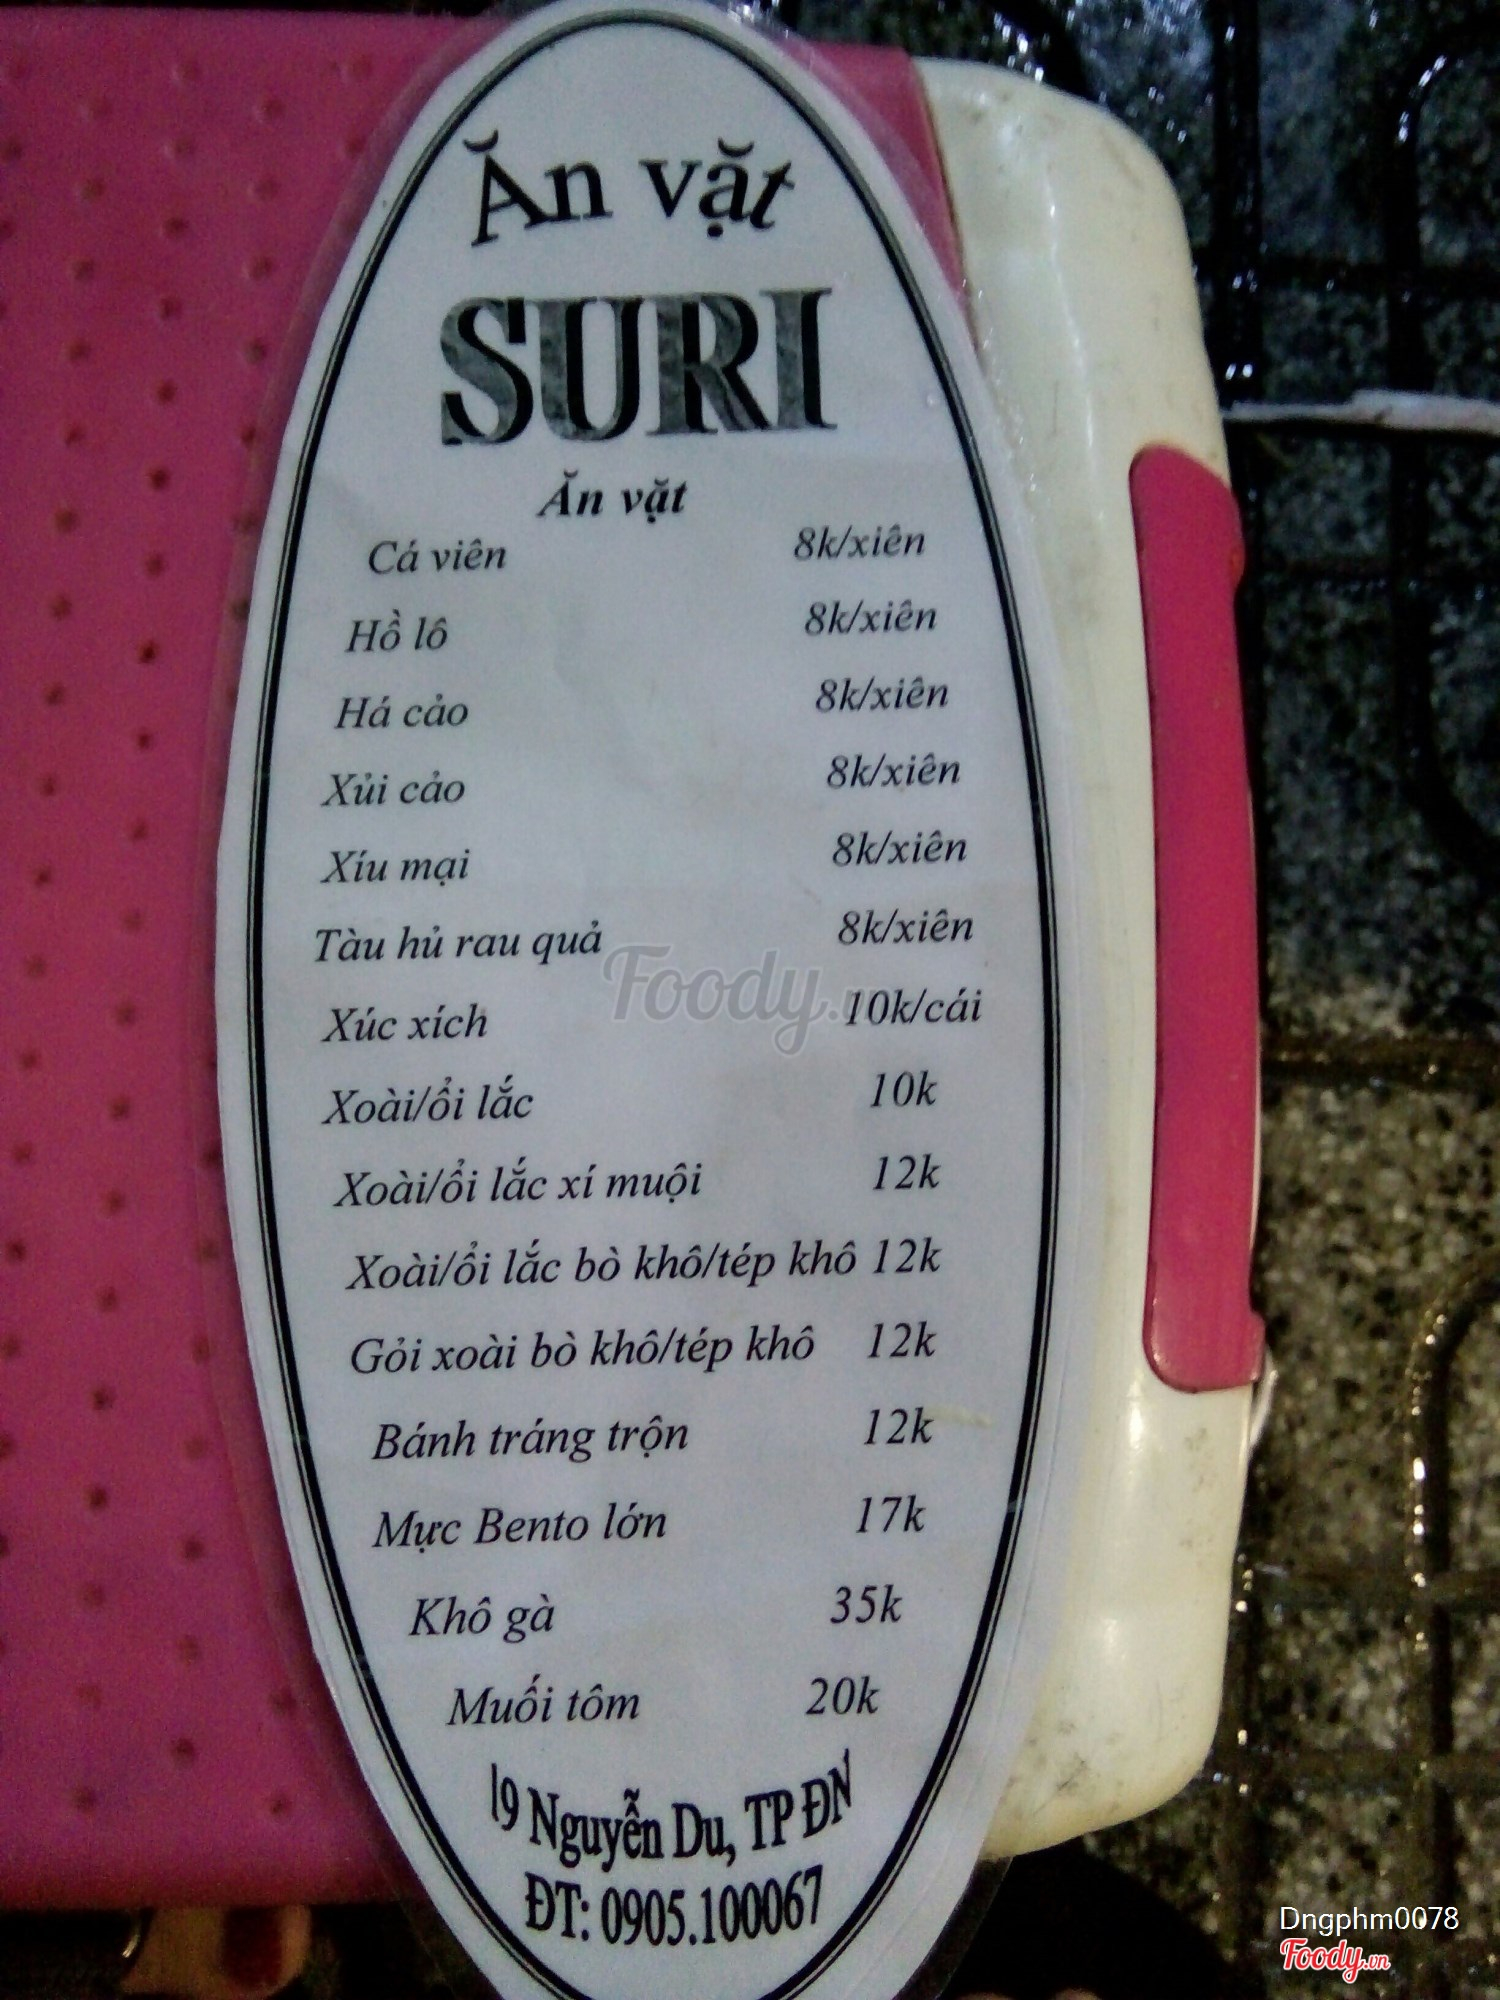 Ăn vặt
SURI
Ăn vặt
Cá viên 8k/xiên
Hồ lô 8k/xiên
Há cảo 8k/xiên
Xủi cảo 8k/xiên
Xíu mại 8k/xiên
Tàu hủ rau quả 8k/xiên
Xúc xích 10k/cái
Xoài/ổi lắc 10k
Xoài/ổi lắc xí muội 12k
Xoài/ổi lắc bò khô/tép khô 12k
Gỏi xoài bò khô/tép khô 12k
Bánh tráng trộn 12k
Mực Bento lớn 17k
Khô gà 35k
Muối tôm 20k
19 Nguyễn Du, TP ĐN
ĐT: 0905.100067
Foody.vn
Dngphm0078
Foody.vn